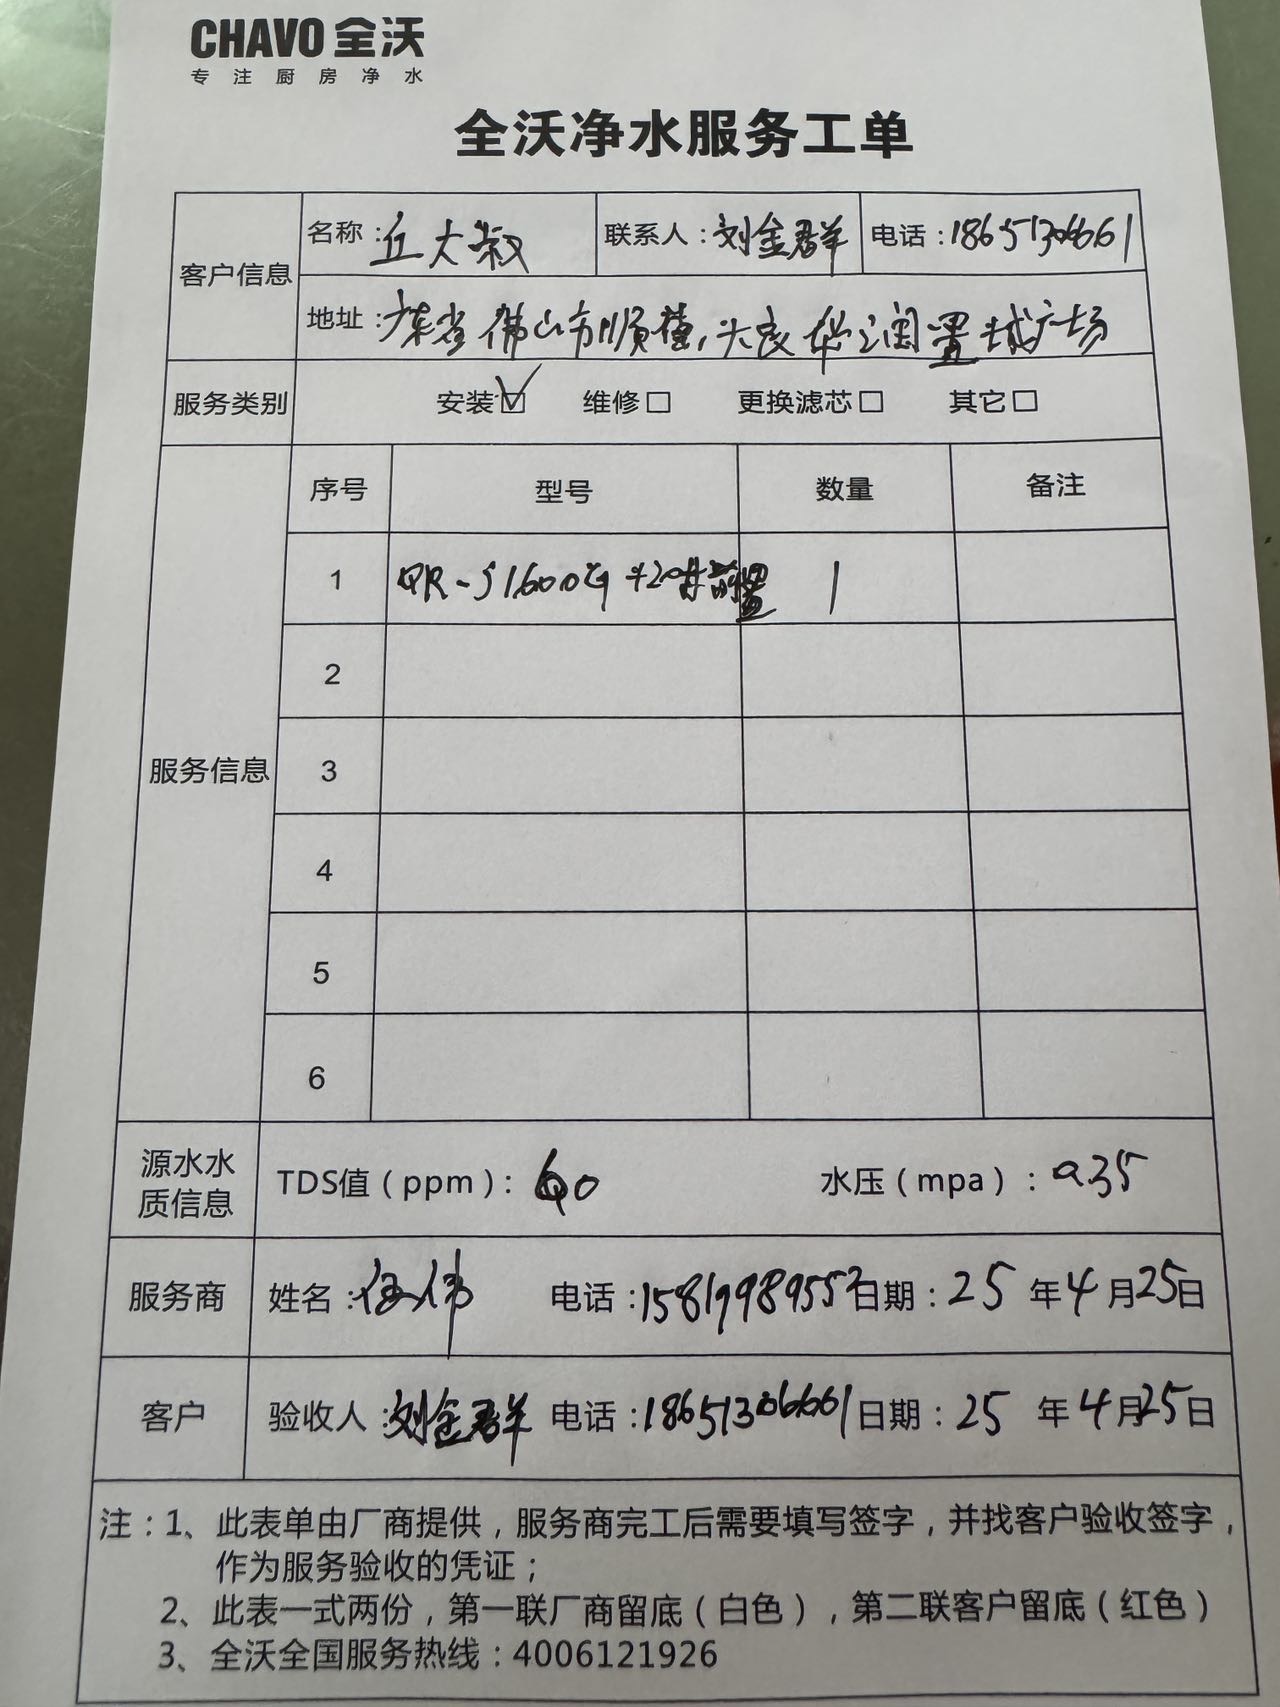 CHAVO全沃
专注厨房净水
全沃净水服务工单
客户信息 名称：丘大叔 联系人：刘金群 电话：18651306661
地址：广东省佛山市顺德，大良华润置地广场
服务类别 安装☑ 维修□ 更换滤芯□ 其它□
服务信息
序号 型号 数量 备注
1 QR-J1600G+20寸前置 1
2
3
4
5
6
源水水质信息 TDS值（ppm）：60 水压（mpa）：0.35
服务商 姓名：伍伟 电话：15819989552 日期：25年4月25日
客户 验收人：刘金群 电话：18651306661 日期：25年4月25日
注：1、此表单由厂商提供，服务商完工后需要填写签字，并找客户验收签字，
作为服务验收的凭证；
2、此表一式两份，第一联厂商留底（白色），第二联客户留底（红色）
3、全沃全国服务热线：4006121926